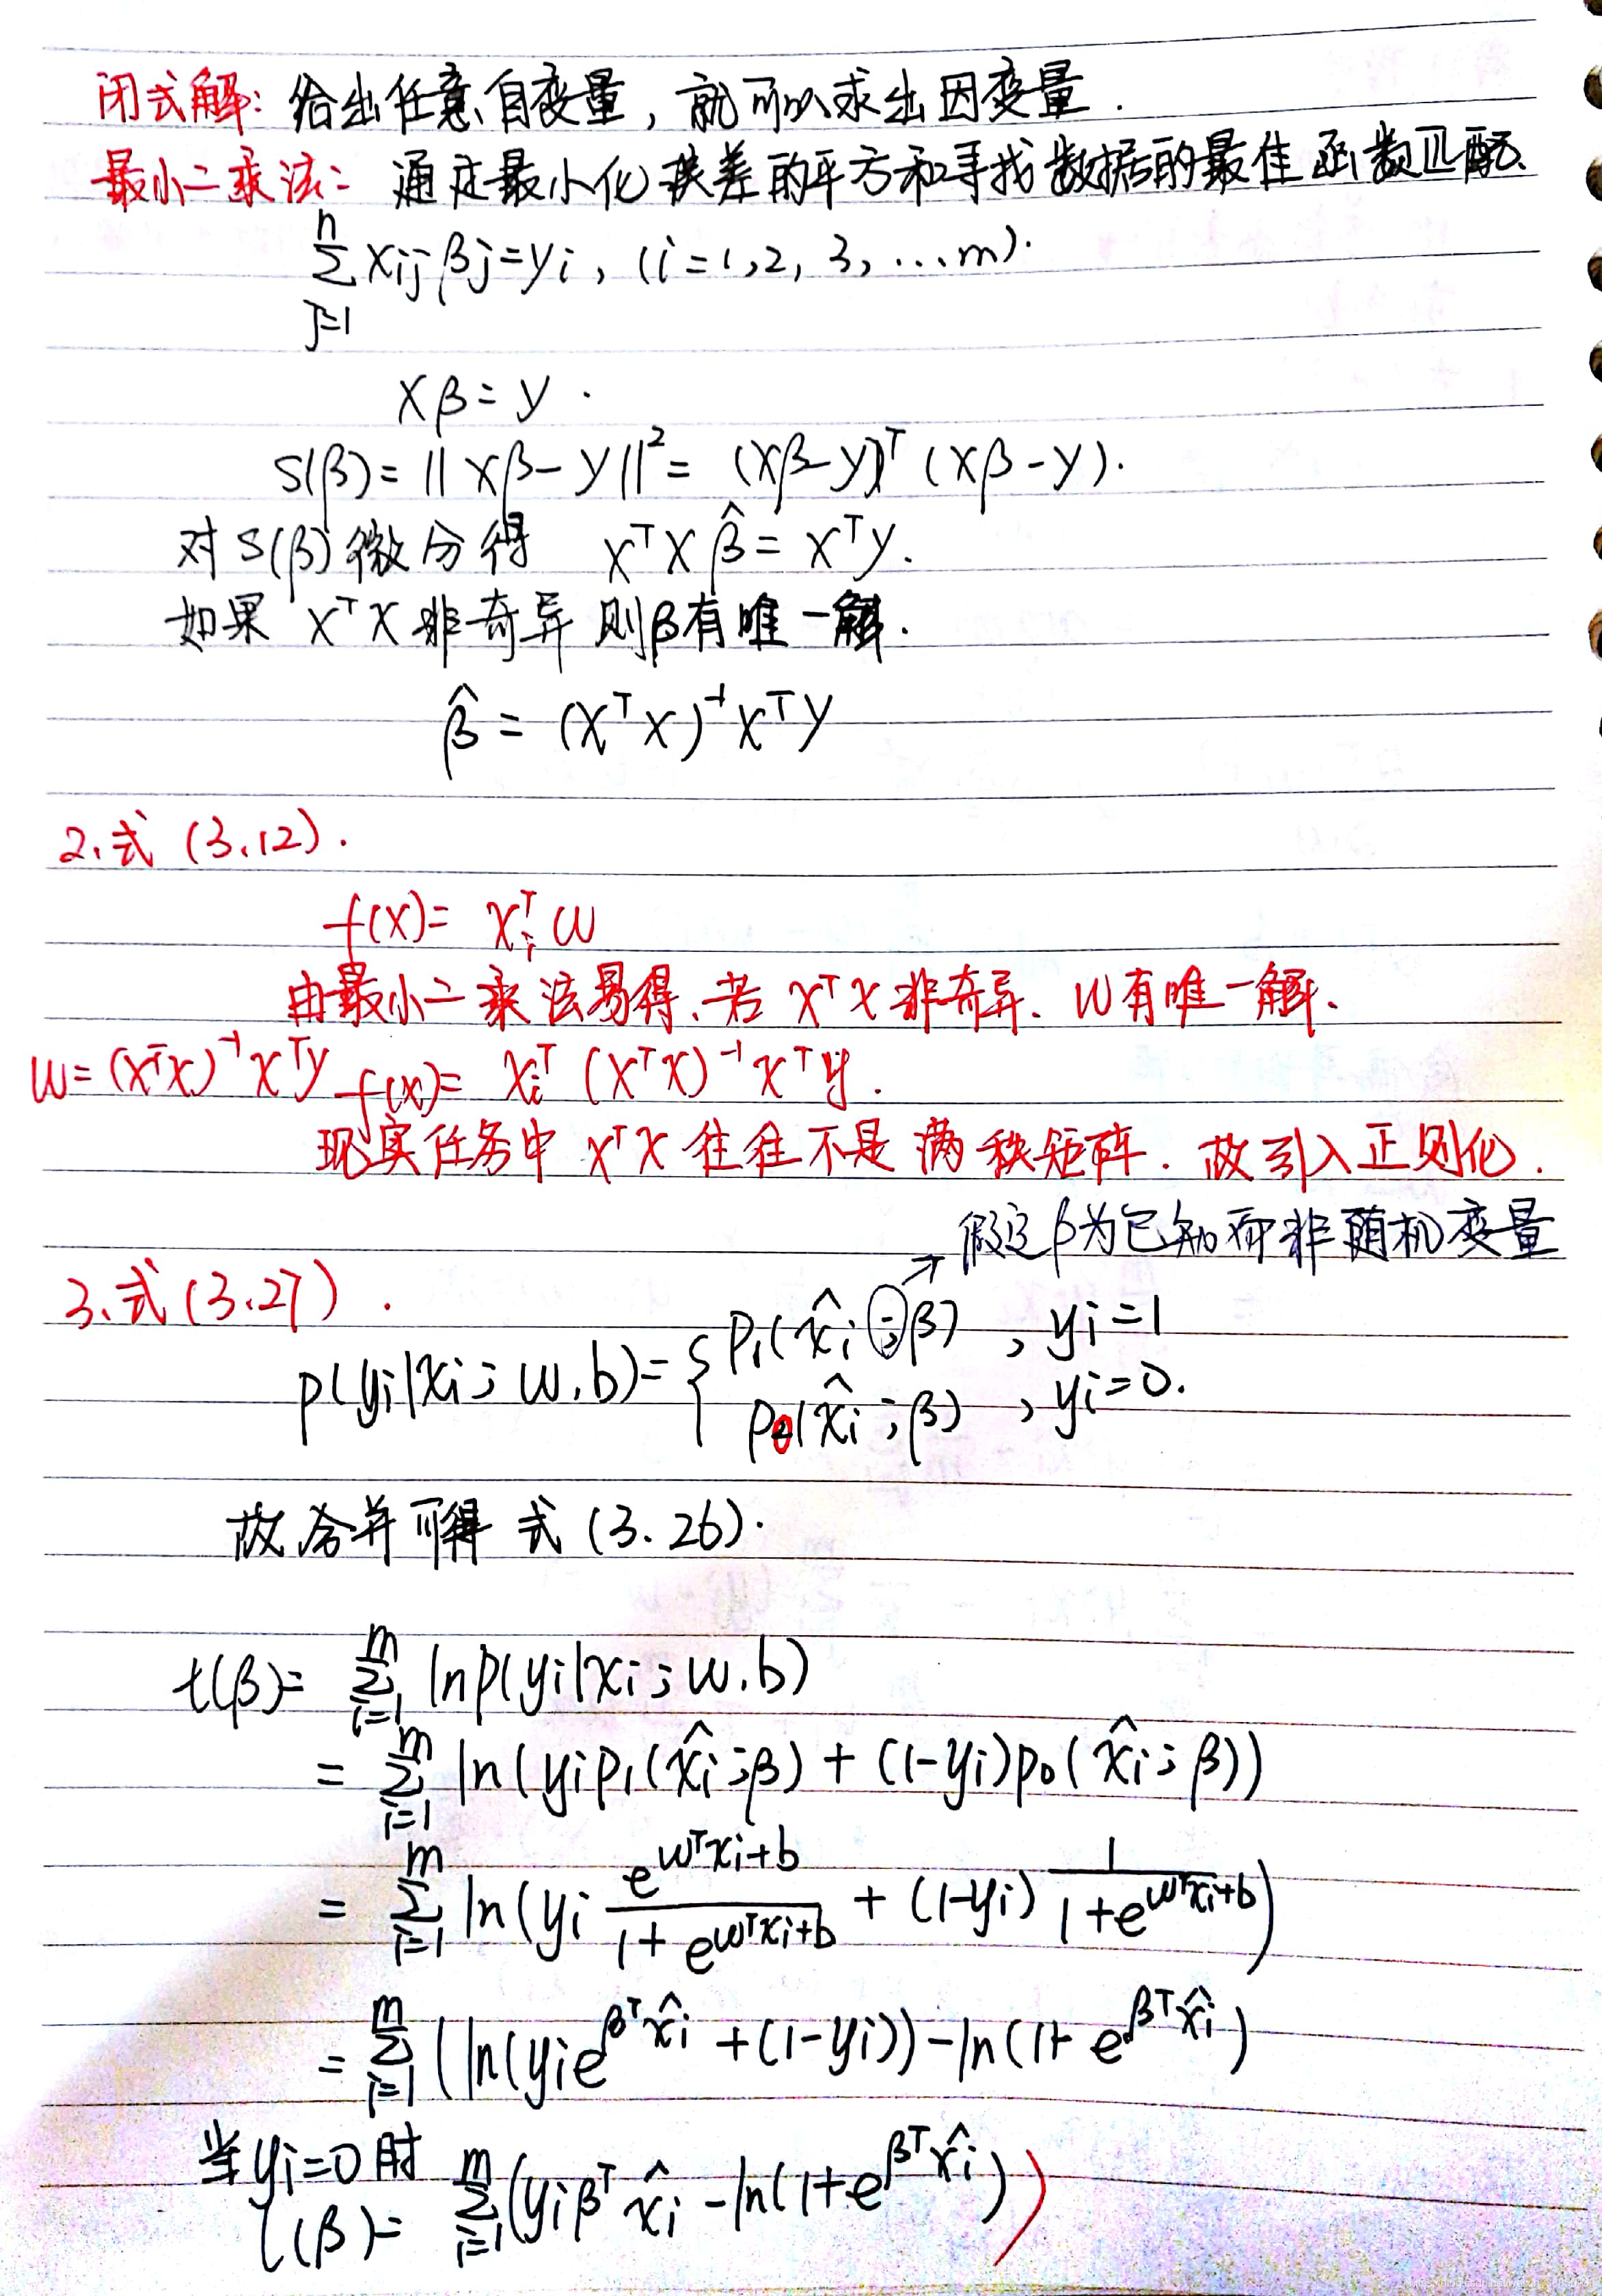 闭式解: 给出任意自变量, 就可以求出因变量.
最小二乘法: 通过最小化误差的平方和寻找数据的最佳函数匹配.
$\sum_{j=1}^{n} x_{ij}\beta_j = y_i$, (i=1,2,3,...m).
$X\beta = y$.
$S(\beta) = \|X\beta - y\|^2 = (X\beta - y)^T (X\beta - y)$.
对 $S(\beta)$ 微分得 $X^T X \hat{\beta} = X^T y$.
如果 $X^T X$ 非奇异 则 $\beta$ 有唯一解.
$\hat{\beta} = (X^T X)^{-1} X^T y$
2. 式 (3.12).
$f(x) = x_i^T w$
由最小二乘法易得, 若 $X^T X$ 非奇异. $w$ 有唯一解.
$w = (X^T X)^{-1} X^T y$ $f(x) = x_i^T (X^T X)^{-1} X^T y$.
现实任务中 $X^T X$ 往往不是满秩矩阵. 故引入正则化.
→ 假定 $\beta$ 为已知而非随机变量
3. 式 (3.27).
$p(y_i|x_i; w, b) = \begin{cases} p_1(\hat{x}_i; \beta), & y_i = 1 \\ p_0(\hat{x}_i; \beta), & y_i = 0. \end{cases}$
故合并可得 式 (3.26).
$\ell(\beta) = \sum_{i=1}^{m} \ln p(y_i|x_i; w, b)$
$= \sum_{i=1}^{m} \ln(y_i p_1(\hat{x}_i; \beta) + (1-y_i) p_0(\hat{x}_i; \beta))$
$= \sum_{i=1}^{m} \ln(y_i \frac{e^{w^T x_i + b}}{1 + e^{w^T x_i + b}} + (1-y_i) \frac{1}{1 + e^{w^T x_i + b}})$
$= \sum_{i=1}^{m} (\ln(y_i e^{\beta^T \hat{x}_i} + (1-y_i)) - \ln(1 + e^{\beta^T \hat{x}_i})$
当 $y_i = 0$ 时
$\ell(\beta) = \sum_{i=1}^{m} (y_i \beta^T \hat{x}_i - \ln(1 + e^{\beta^T \hat{x}_i}))$